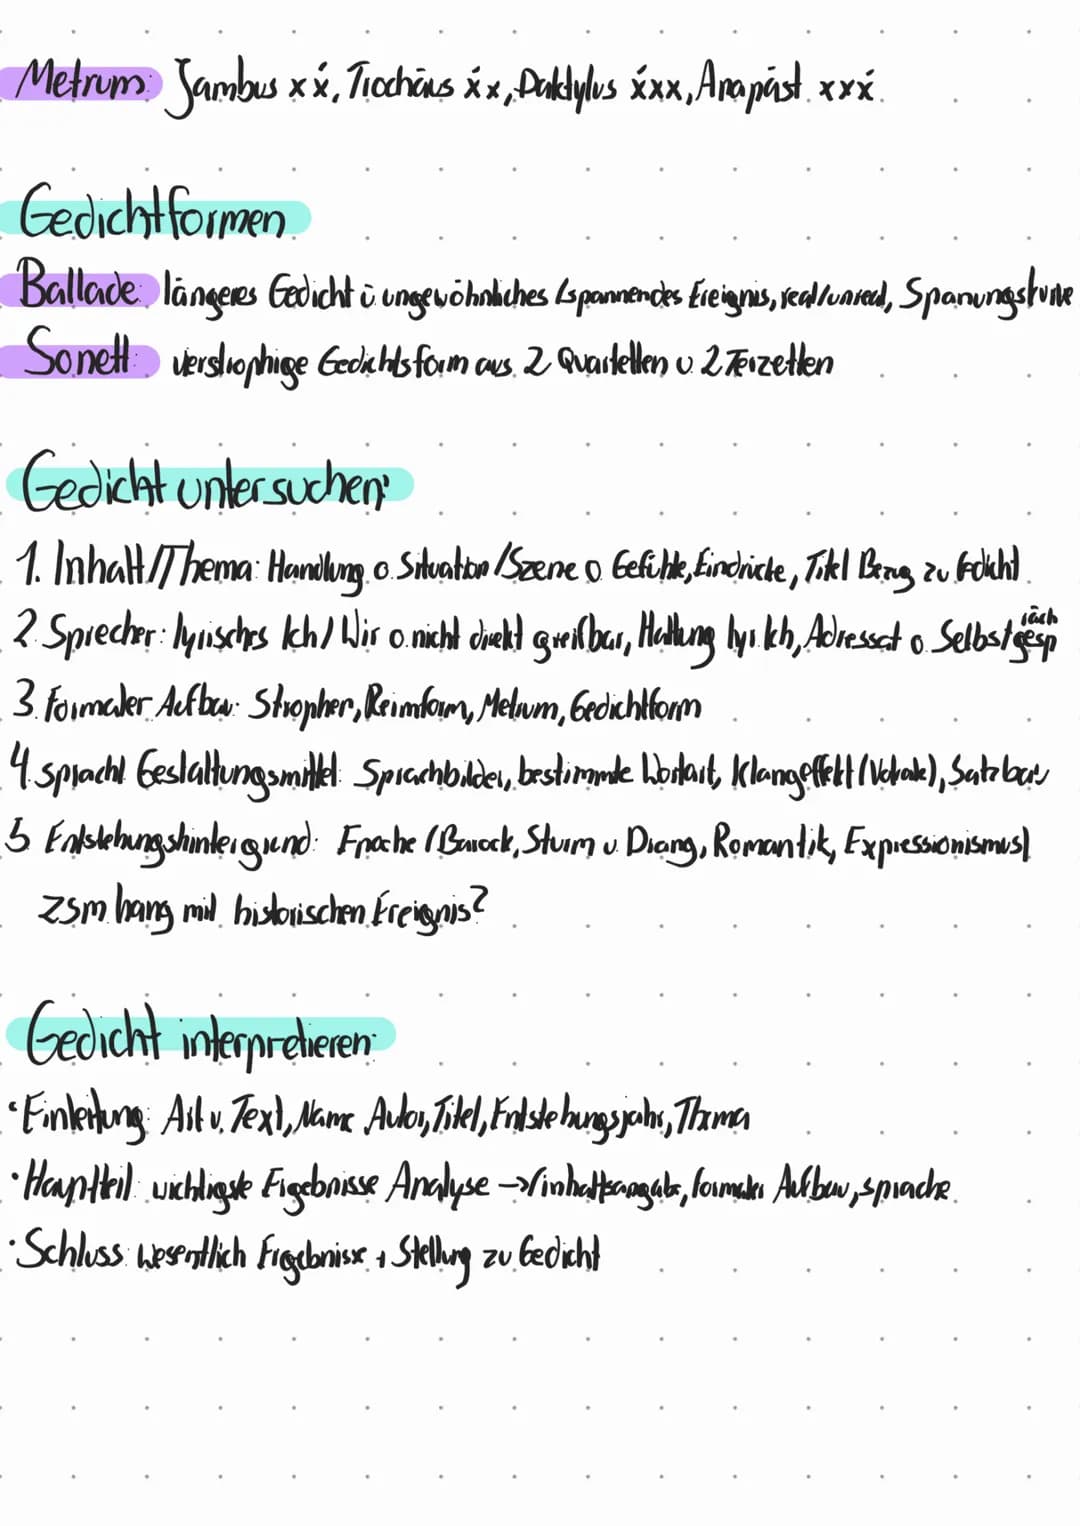 Metrum: Jambus xx́, Trochäus x́x, Daktylus x́xx, Anapäst xxx́
Gedichtformen
Ballade: längeres Gedicht ü ungewöhnliches /spannendes Ereignis, real/unreal, Spanungskurve
Sonett: vierstrophige Gedichtsform aus 2 Quartetten u 2 Terzetten
Gedicht untersuchen:
1. Inhalt/Thema: Handlung o. Situation /Szene o Gefühle, Eindrücke, Titel Bezug zu Gedicht
2. Sprecher: lyrisches Ich / Wir o. nicht direkt greifbar, Haltung lyr. Ich, Adressat o. Selbstgespräch
3. Formaler Aufbau: Strophen, Reimform, Metrum, Gedichtform
4. sprachl Gestaltungsmittel: Sprachbilder, bestimmte Wortart, Klangeffekt (Vokale), Satzbau
5 Entstehungshintergrund: Epoche (Barock, Sturm u Drang, Romantik, Expressionismus)
zsm.hang mit historischen Ereignis?
Gedicht interpretieren:
• Einleitung: Art v. Text, Name Autor, Titel, Entstehungsjahr, Thema
• Hauptteil: wichtigste Ergebnisse Analyse → inhaltsangabe, formaler Aufbau, sprache
• Schluss: wesentlich Ergebnisse + Stellung zu Gedicht